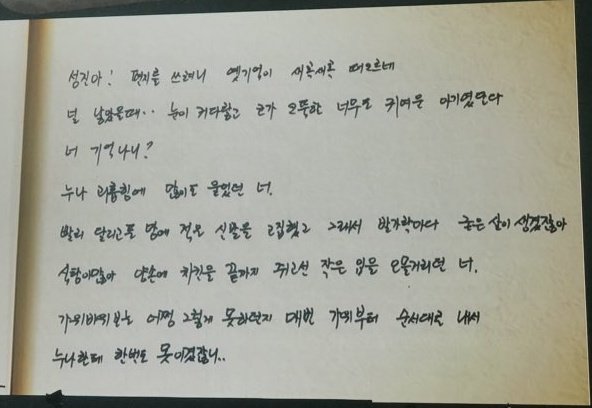 성진아! 편지를 쓰려니 옛기억이 새록새록 떠오르네
널 낳았을때.. 눈이 커다랗고 코가 오뚝한 너무도 귀여운 아기였단다
너 기억나니?
누나 괴롭힘에 많이도 울었던 너.
빨리 달리고픈 맘에 작은 신발을 고집했고 그래서 발가락마다 굳은 살이 생겼잖아
식탐이많아 양손에 치킨을 끝까지 쥐고선 작은 입을 오물거리던 너.
가위바위보는 어쩜 그렇게 못하던지 매번 가위부터 순서대로 내서
누나한테 한번도 못이겼잖니..